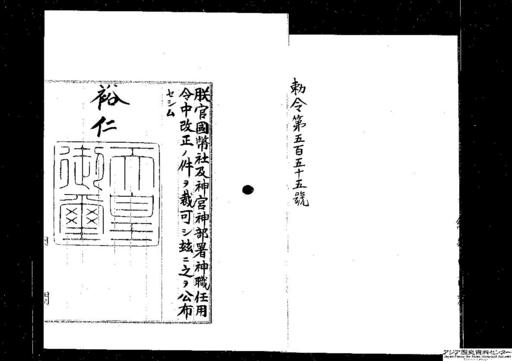 勅令第五百五十五號
朕官國幣社及神宮神部署神職任用
令中改正ノ件ヲ裁可シ玆ニ之ヲ公布
セシム
裕仁
天皇
御璽
内閣
アジア歴史資料センター